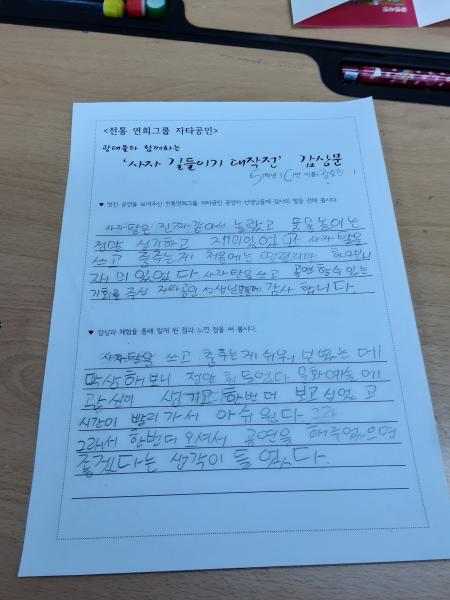 <전통 연희그룹 자타공인>
광대들과 함께하는
'사자 길들이기 대작전' 감상문
학년 ( )반 이름(
♥ 멋진 공연을 보여주신 전통연희그룹 자타공인 공연자 선생님들께 감사의 말을 전해 봅시다.
사자탈은 진짜같아서 놀랐고 풍물놀이는
정말 신기하고 재미있었고 사자탈을
쓰고 춤추는게 처음에는 떨렸지만 해보니
재미있었다 사자탈을 쓰고 공연할수 있는
기회를 주신 자타공인 선생님분들께 감사 합니다.
♥ 감상과 체험을 통해 알게 된 점과 느낀 점을 써 봅시다.
사자탈을 쓰고 춤추는게 쉬워 보였는데
막상해보니 정말 힘들었다 문화예술에
관심이 생겼고 한번 더 보고 싶었고
시간이 빨리가서 아쉬웠다
그래서 한번더 오셔서 공연을 해주었으면
좋겠다는 생각이 들었다.